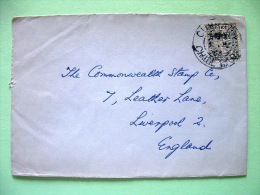 The Commonwealth Stamp Co,
7, Leather Lane,
Liverpool 2.
England